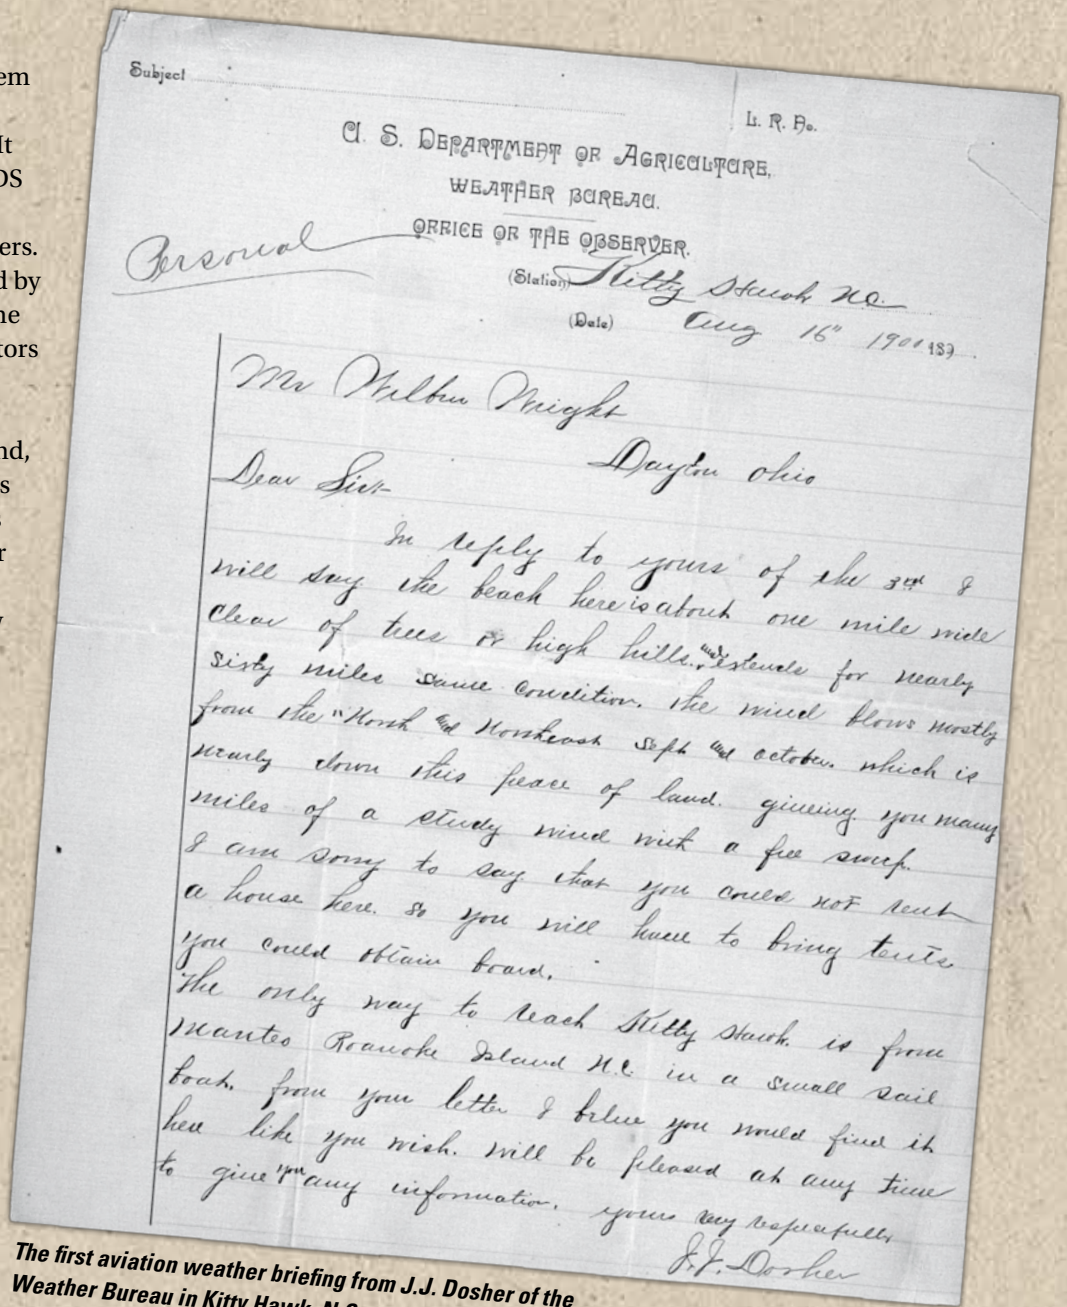 em
It
OS
ers.
d by
ne
tors
nd,
s
r
Subject
L. R. No.
U. S. DEPARTMENT OF AGRICULTURE,
WEATHER BUREAU.
OFFICE OF THE OBSERVER.
Personal
(Station) Kitty Hawk N.C.
(Date) Aug 16" 1900 189 .
Mr Wilbur Wright
Dayton Ohio
Dear Sir-
In reply to yours of the 3rd I
will say the beach here is about one mile wide
clear of trees or high hills. and extends for nearly
sixty miles same condition. the wind blows mostly
from the North and Northeast Sept and October. which is
nearly down this peace of land. giveing you many
miles of a study wind with a free sweep.
I am sorry to say that you could not rent
a house here. so you will have to bring tents
you could obtain board.
The only way to reach Kitty Hawk. is from
Manteo Roanoke Island N.C. in a small sail
boat. from your letter I beleve you would find it
here like you wish. will be pleased at any time
to give you any information. yours very respectfully
J.J. Dosher
The first aviation weather briefing from J.J. Dosher of the
Weather Bureau in Kitty Hawk, N.C.